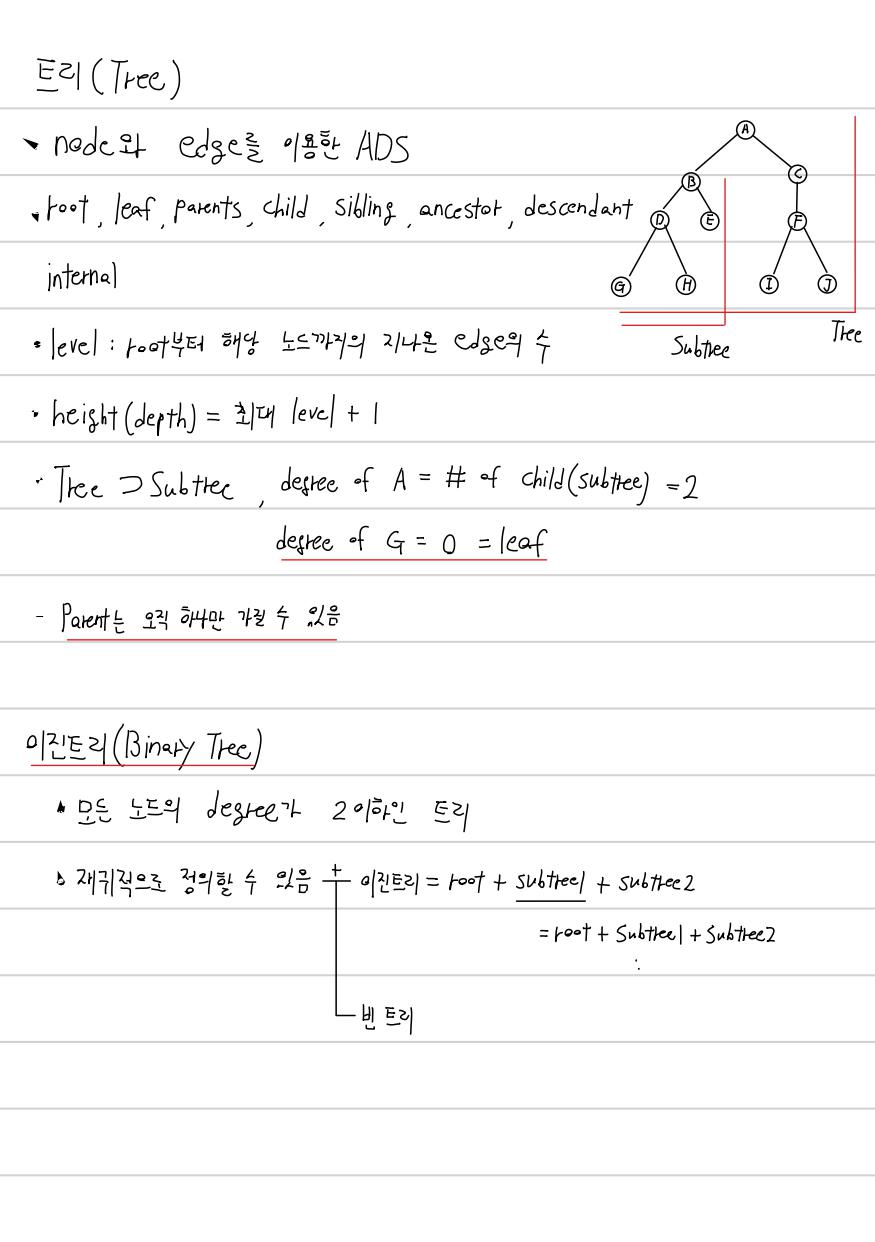 트리(Tree)
node와 edge를 이용한 ADS
root, leaf, parents, child, sibling, ancestor, descendant
internal
A
B
C
D
E
F
G
H
I
J
Subtree
Tree
• level : root부터 해당 노드까지의 지나온 edge의 수
• height(depth) = 최대 level + 1
• Tree ⊃ Subtree , degree of A = # of child(subtree) = 2
degree of G = 0 = leaf
- Parent는 오직 하나만 가질 수 있음
이진트리(Binary Tree)
모든 노드의 degree가 2이하인 트리
재귀적으로 정의할 수 있음 + 이진트리 = root + subtree1 + subtree2
= root + Subtree1 + Subtree2
:
빈 트리